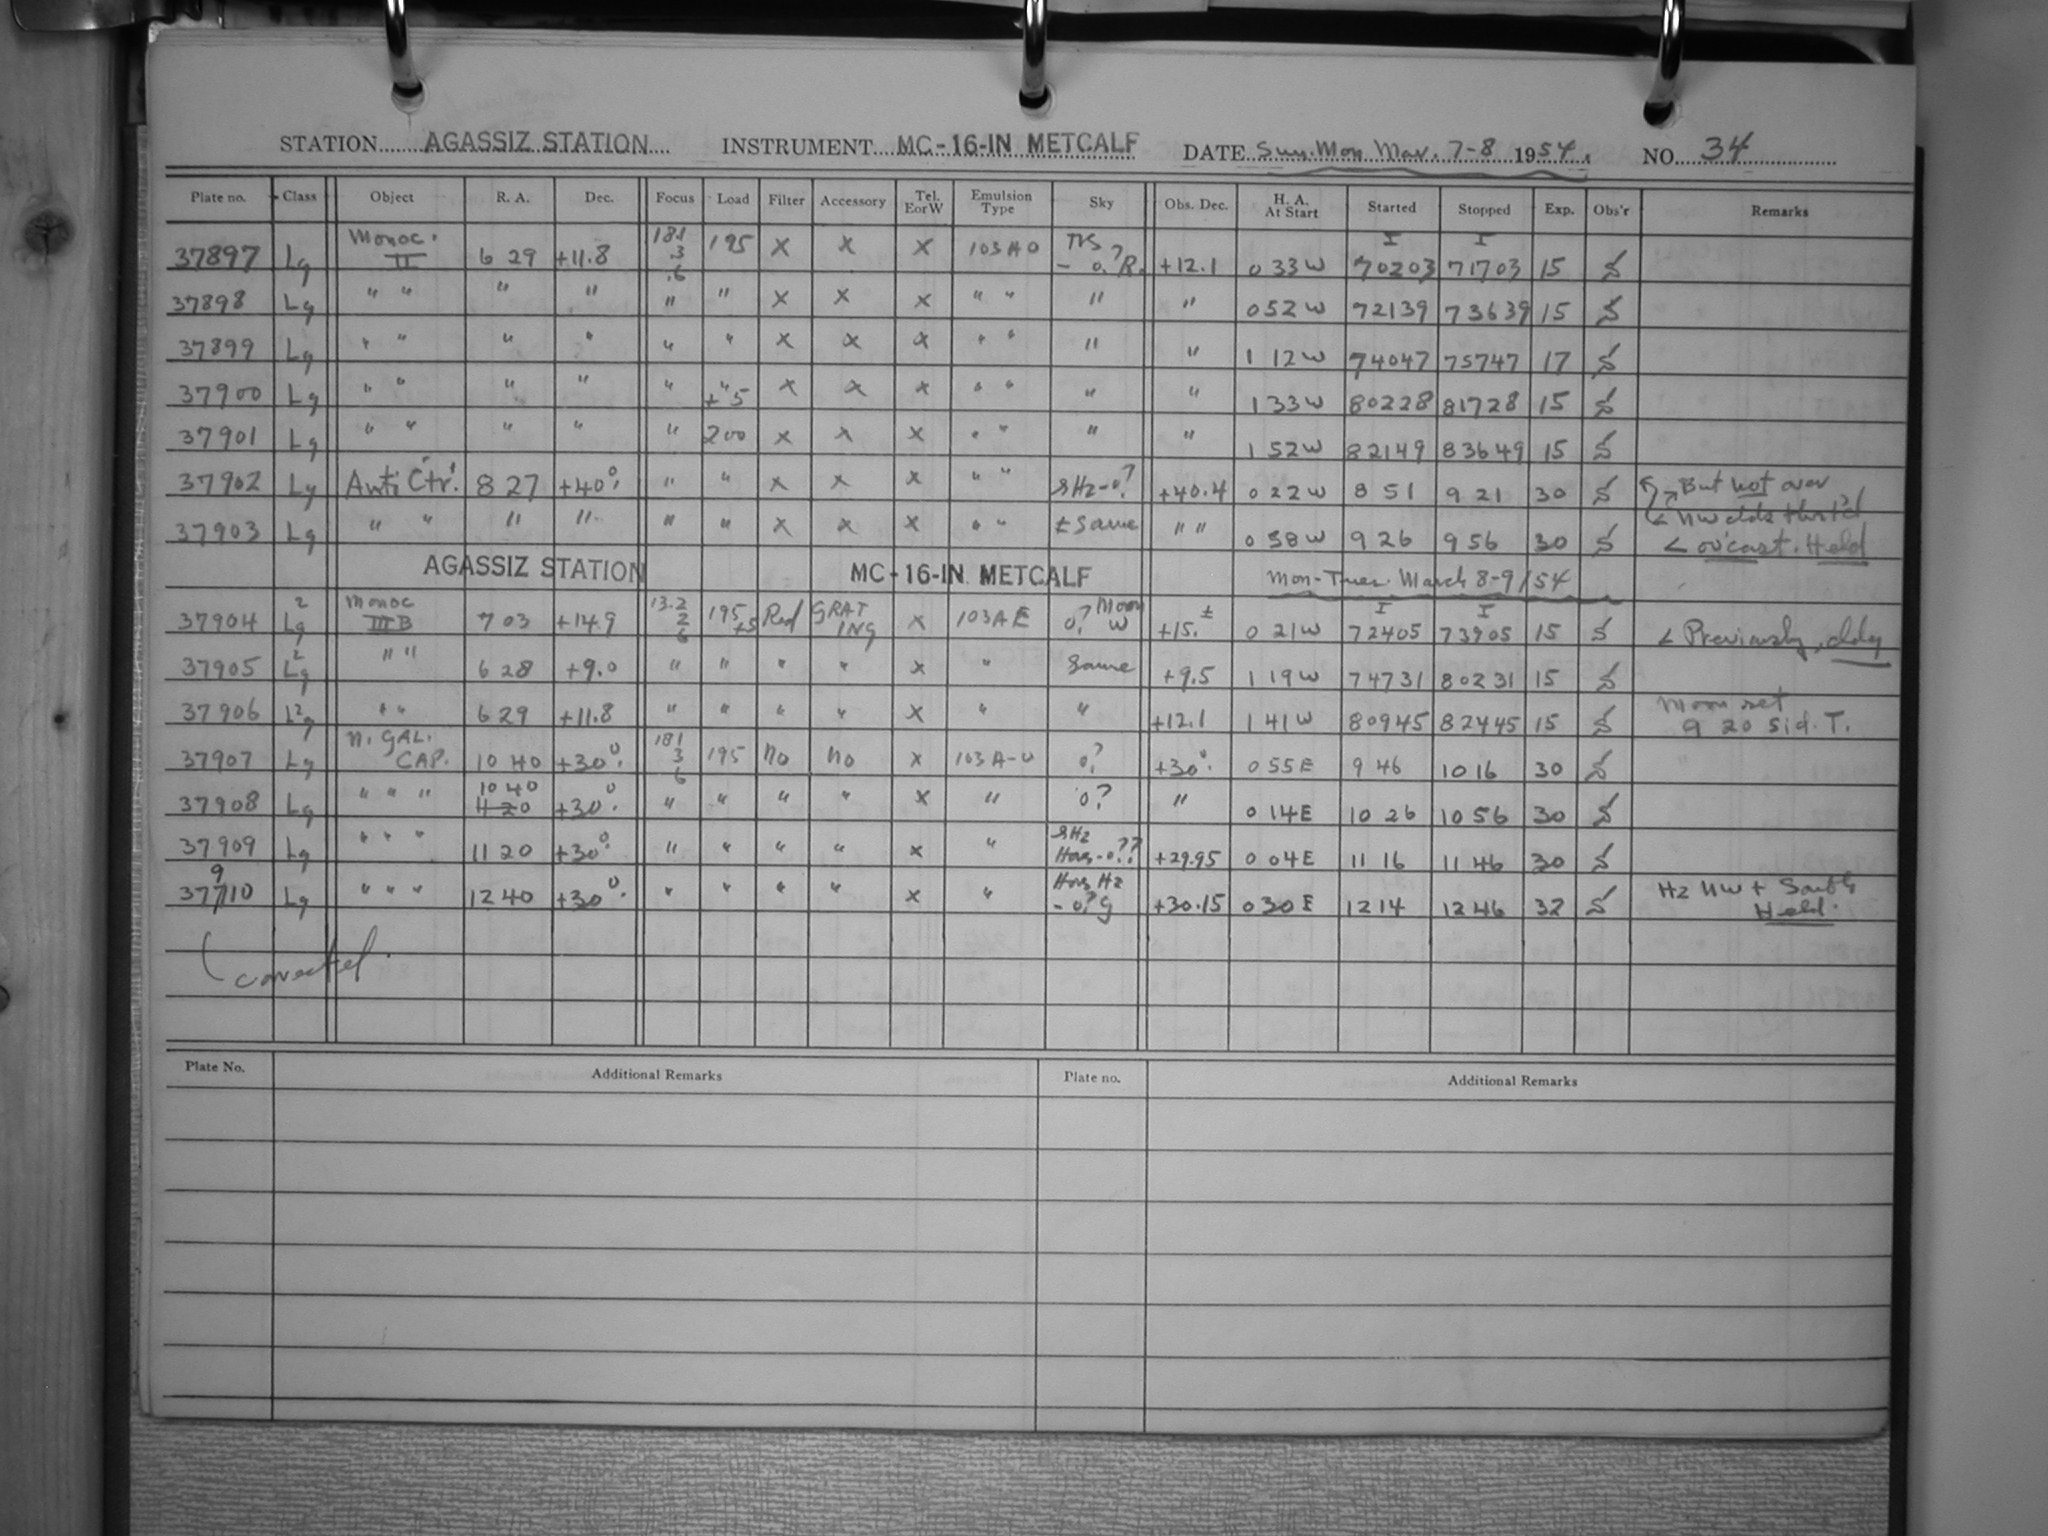 STATION AGASSIZ STATION INSTRUMENT MC-16-IN METCALF DATE Sun. Mon. Mar. 7-8 1954. NO. 34
Plate no. Class Object R. A. Dec. Focus Load Filter Accessory Tel. E or W Emulsion Type Sky Obs. Dec. H. A. At Start Started Stopped Exp. Obs'r Remarks
37897 Lg Monoc. II 6 29 +11.8 181 .3 .6 195 X X X 103AO - 0.? R. +12.1 0 33 W 70203 71703 15
37898 Lg " " " " " " X X X " " " " 0 52 W 72139 73639 15
37899 Lg " " " " " " X X X " " " " 1 12 W 74047 75747 17
37900 Lg " " " " " " +5 X X X " " " " 1 33 W 80228 81728 15
37901 Lg " " " " " 200 X X X " " " " 1 52 W 82149 83649 15
37902 Lg Anti Ctr. 8 27 +40°. " " X X X " " sHz-0? +40.4 0 22 W 8 51 9 21 30 But not over
37903 Lg " " " " " " X X X " " ± Same " " 0 58 W 9 26 9 56 30 < ov'cast. Held
AGASSIZ STATION MC-16-IN METCALF Mon-Tues. March 8-9/54
37904 Lg2 Monoc IIIB 7 03 +14.9 13.2 2 6 195 +5 Red GRATING X 103AE 0? Moon W +15.± 0 21 W 72405 73905 15 < Previously, cldy
37905 Lg2 " " 6 28 +9.0 " " " " X " Same +9.5 1 19 W 74731 80231 15
37906 Lg2 " " 6 29 +11.8 " " " " X " " +12.1 1 41 W 80945 82445 15 Moon set 9 20 Sid. T.
37907 Lg N. GAL. CAP. 10 40 +30°. 181 3 6 195 no no X 103A-O 0? +30°. 0 55 E 9 46 10 16 30
37908 Lg " " " 10 40 11 20 +30°. " " " " X " 0? " 0 14 E 10 26 10 56 30
37909 Lg " " " 11 20 +30°. " " " " X " sHz Hors-0?? +29.95 0 04 E 11 16 11 46 30
37710 9 Lg " " " 12 40 +30°. " " " " X " Hors Hz - 0? G +30.15 0 30 E 12 14 12 46 32 Hz NW + South Held.
corrected.
Plate No. Additional Remarks Plate no. Additional Remarks